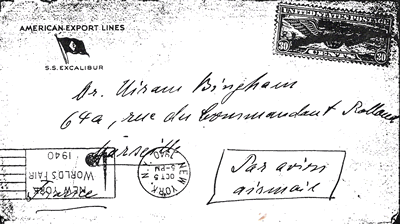 AMERICAN EXPORT LINES
S.S. EXCALIBUR
UNITED STATES POSTAGE
30
30
Dr. Hiram Bingham
64a, rue du Commandant Rolland
Marseille
France
NEW YORK
WORLD'S FAIR
1940
NEW YORK, N.
OCT 5
1940
Par avion
airmail